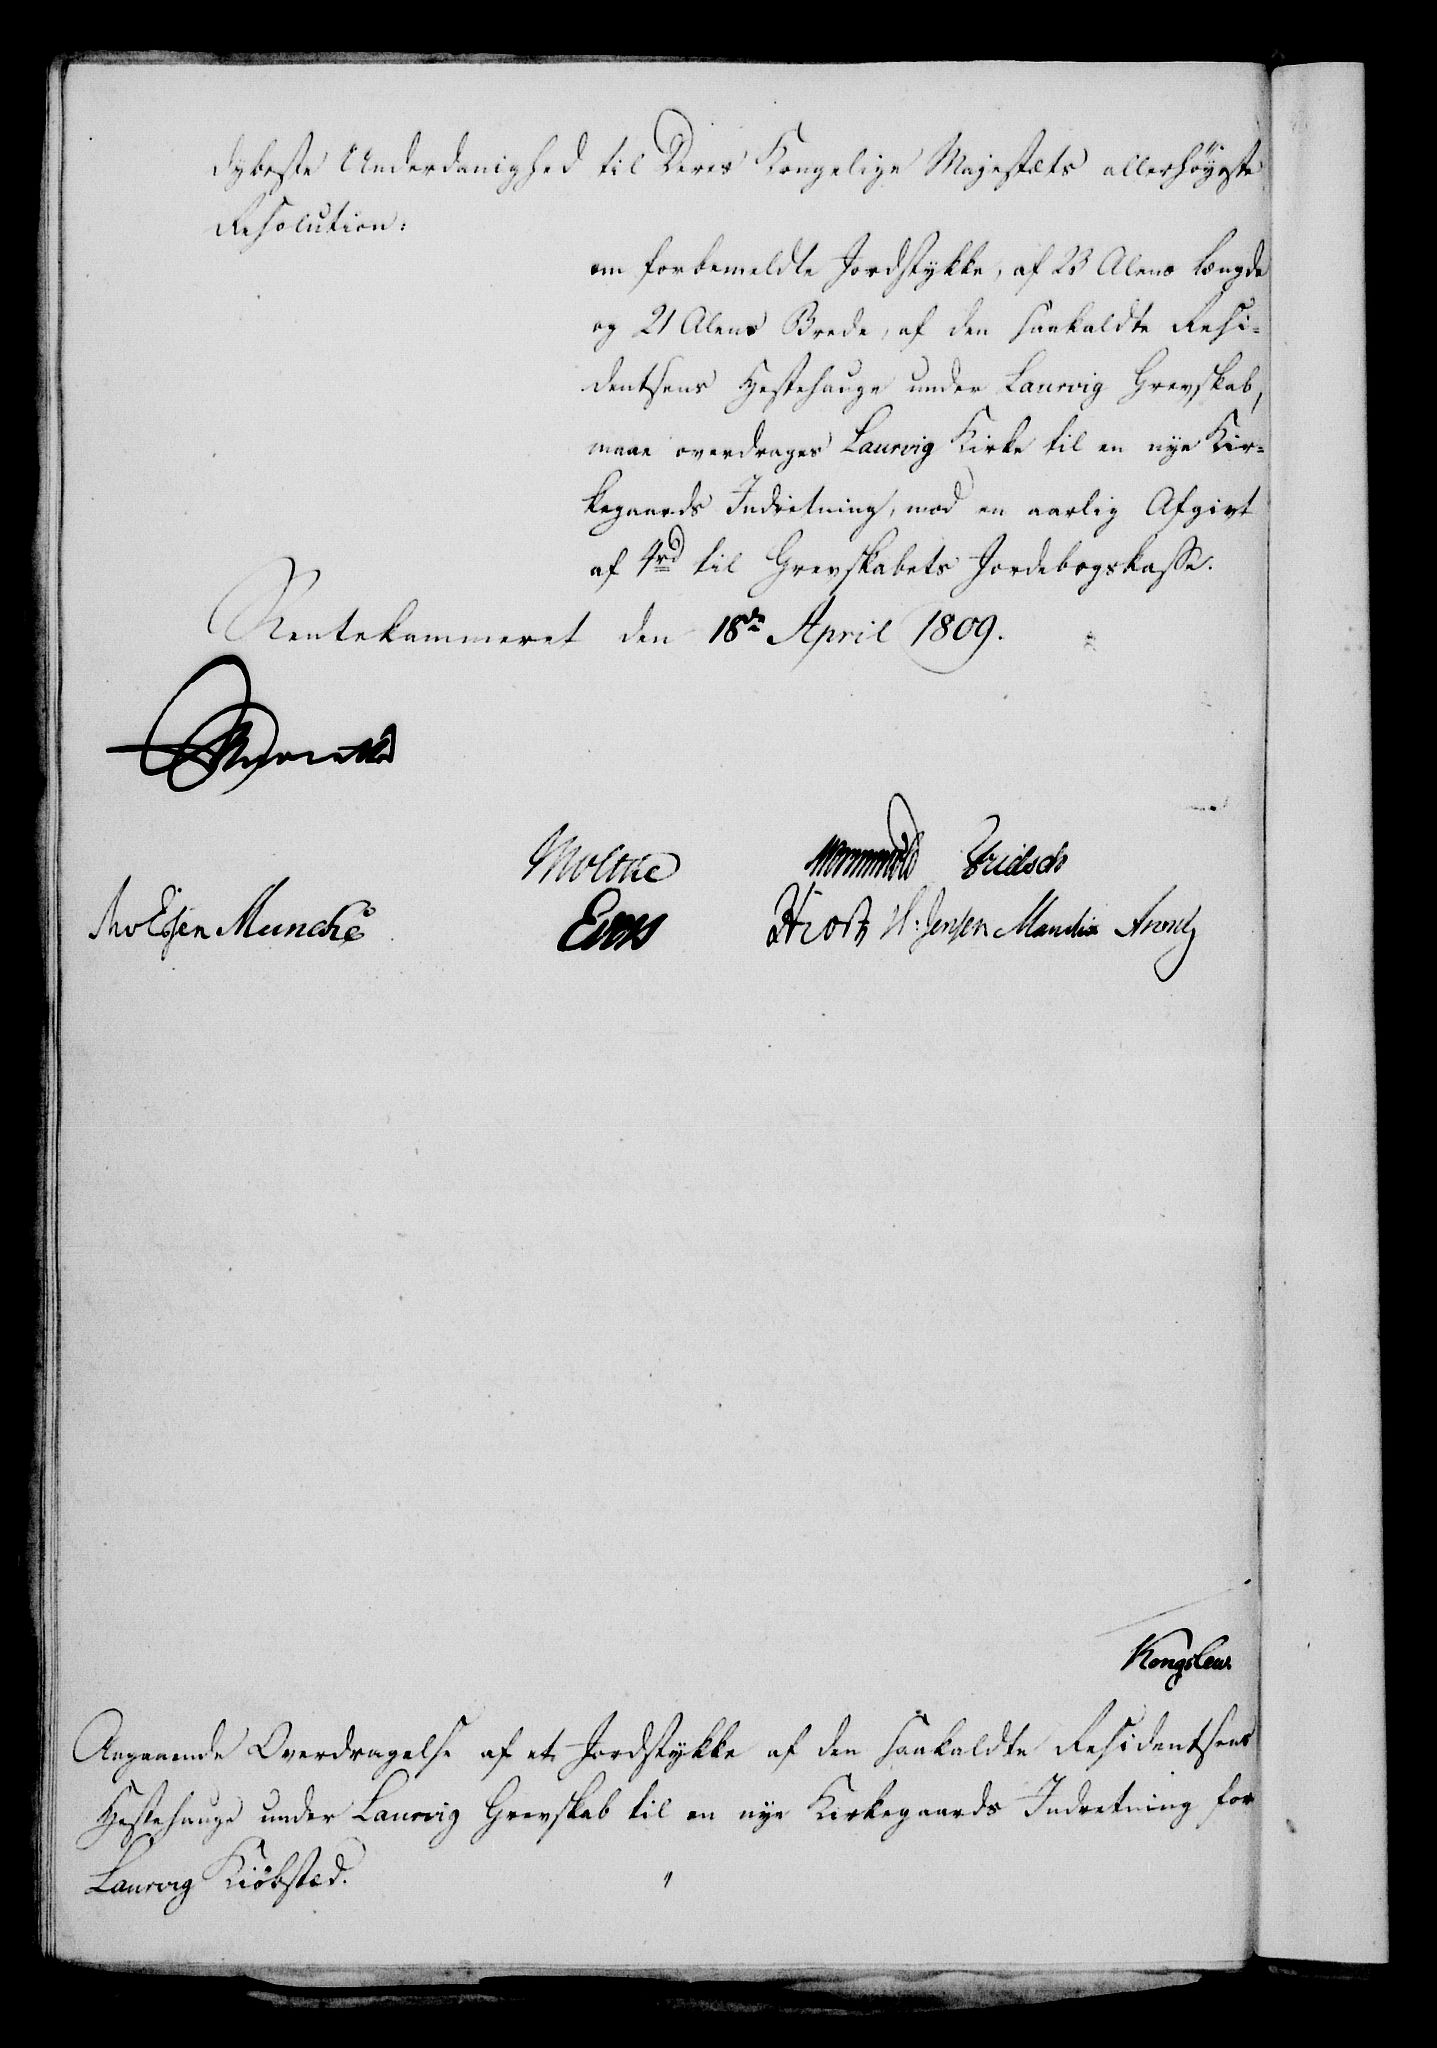 dybeste Underdanighed til Deres Kongelige Majestæts allerhöyeste
Resolution:
om forbemeldte Jordstykke, af 23 Alens Længde
og 21 Alens Brede, af den saakaldte Resi-
dentsens Hestehauge under Laurvig Grevskab,
maae overdrages Laurvig Kirke til en nye Kir-
kegaards Indretning, mod en aarlig Afgivt
af 4rd til Grevskabets Jordebogskasse.
Rentekammeret den 18de April 1809.
Moltke Wormskiold Fridsch
Munthe Evers Hiort H: Jensen Arentz
Kongslew
Angaaende Overdragelse af et Jordstykke af den saakaldte Residentsens
Hestehauge under Laurvig Grevskab til en nye Kirkegaards Indretning for
Laurvig Kiöbsted.